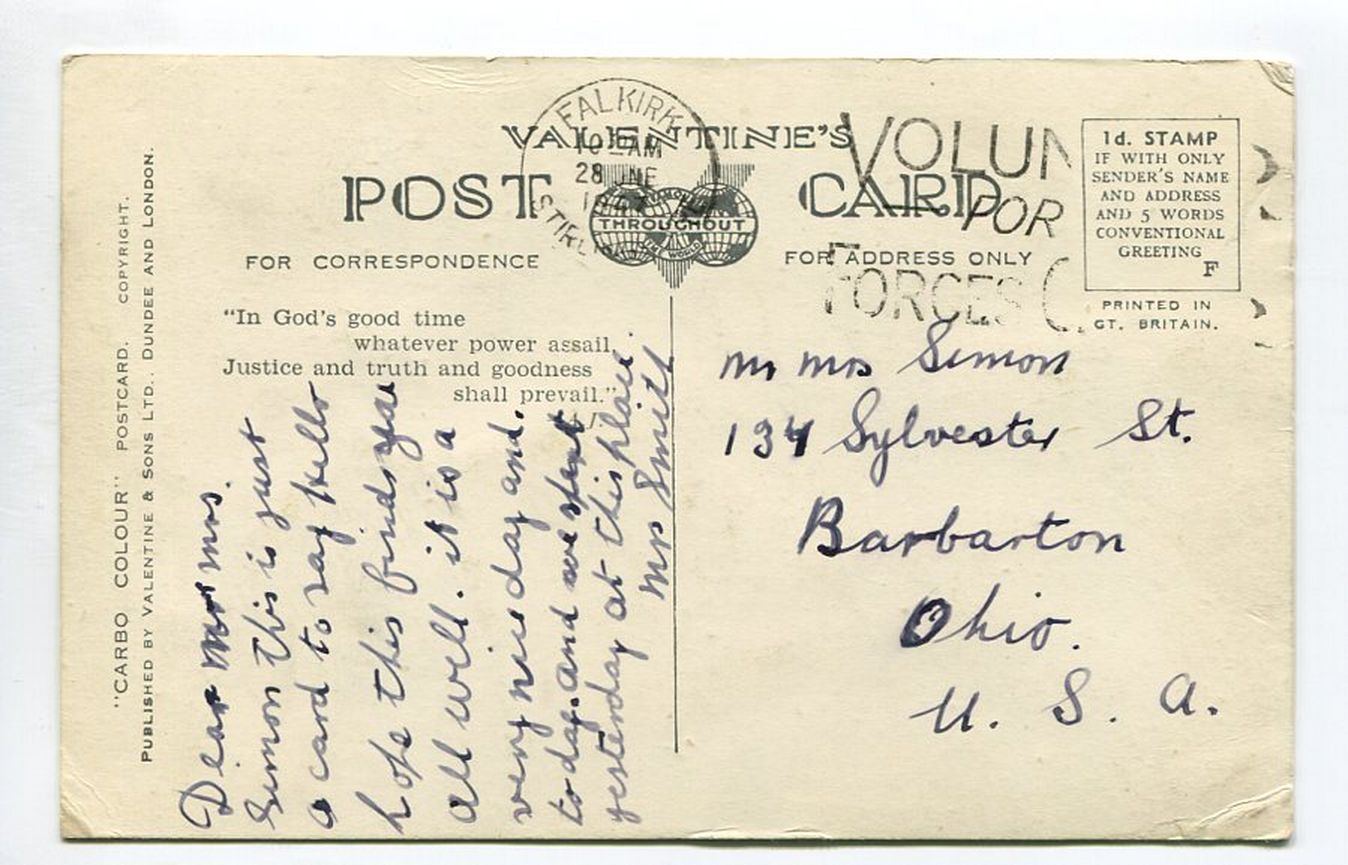 FALKIRK
10 AM
28 JNE
STIRL
VOLUN
FOR
FORCES
VALENTINE'S
POST CARD
THROUGHOUT
THE WORLD
FOR CORRESPONDENCE
FOR ADDRESS ONLY
1d. STAMP
IF WITH ONLY
SENDER'S NAME
AND ADDRESS
AND 5 WORDS
CONVENTIONAL
GREETING
F
PRINTED IN
GT. BRITAIN.
"CARBO COLOUR" POSTCARD. COPYRIGHT.
PUBLISHED BY VALENTINE & SONS LTD., DUNDEE AND LONDON.
"In God's good time
whatever power assail,
Justice and truth and goodness
shall prevail."
Dear Mr mrs.
Simon this is just
a card to say hello
hope this finds you
all well. it is a
very nice day and.
to day. and we spent
yesterday at this place.
Mrs Smith
Mr Mrs Simon
134 Sylvester St.
Barbarton
Ohio.
U. S. A.